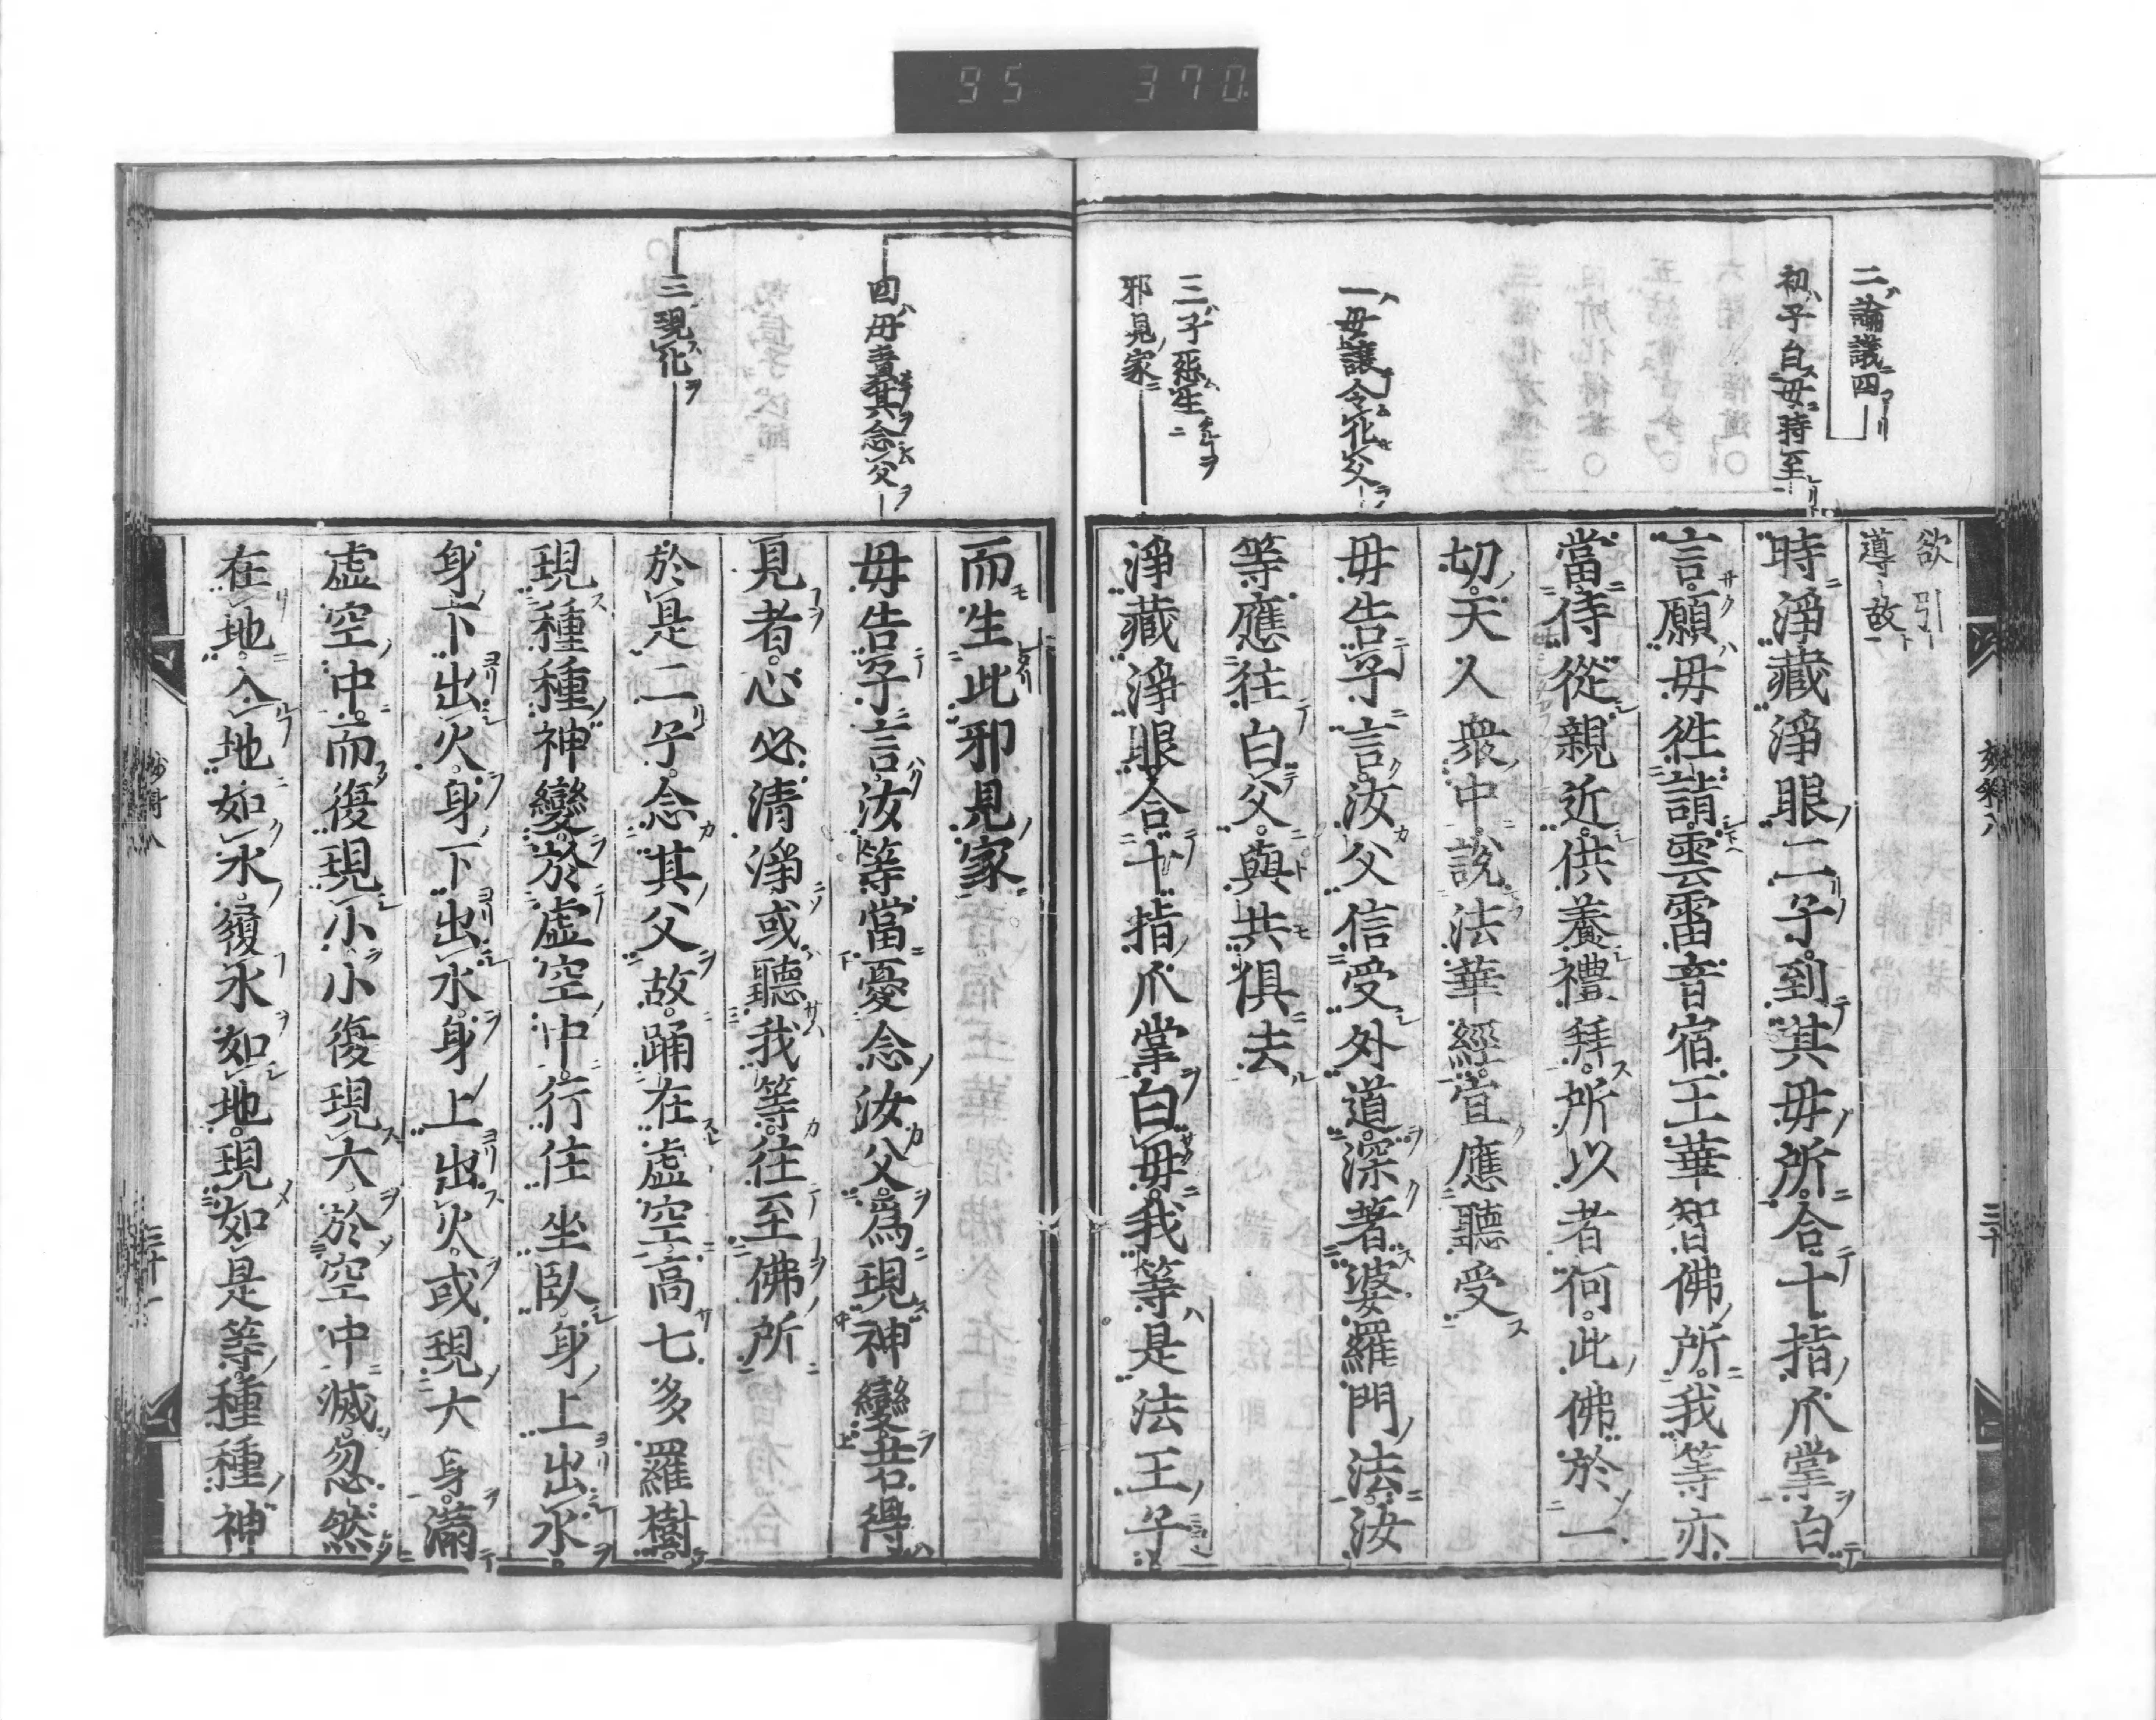 95 370
二論議四
初子白母時至
一母讓令化父
三子怨生
邪見家
欲引
導故
時淨藏淨眼二子到其母所合十指爪掌白
言願母往詣雲雷音宿王華智佛所我等亦
當侍從親近供養禮拜所以者何此佛於一
切天人衆中說法華經宜應聽受
母告子言汝父信受外道深著婆羅門法汝
等應往白父與共俱去
淨藏淨眼合十指爪掌白母我等是法王子
三十
四母責其念父
三現化
而生此邪見家
母告子言汝等當憂念汝父爲現神變若得
見者心必清淨或聽我等往至佛所
於是二子念其父故踊在虛空高七多羅樹
現種種神變於虛空中行住坐臥身上出水
身下出火身下出水身上出火或現大身滿
虛空中而復現小小復現大於空中滅忽然
在地入地如水履水如地現如是等種種神
三十一